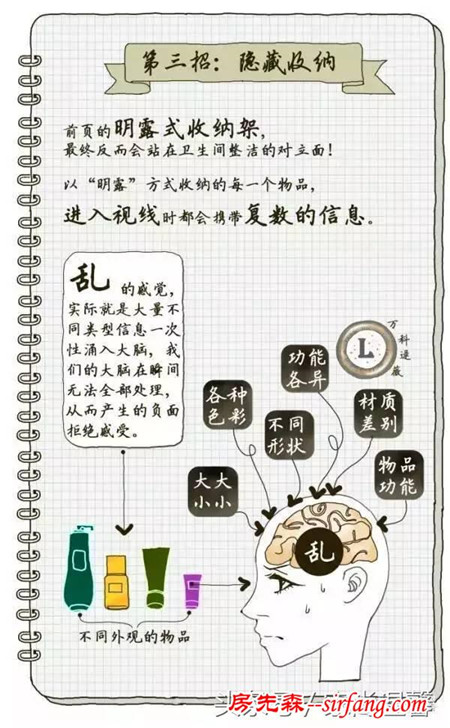 第三招：隐藏收纳
前页的明露式收纳架，
最终反而会站在卫生间整洁的对立面！
以“明露”方式收纳的每一个物品，
进入视线时都会携带复数的信息。
乱的感觉，
实际就是大量不
同类型信息一次
性涌入大脑，我
们的大脑在瞬间
无法全部处理，
从而产生的负面
拒绝感受。
L
万科速藏
功能
各异
各种
色彩
材质
差别
不同
形状
物品
功能
大大
小小
乱
不同外观的物品
房先森--sirfang.com